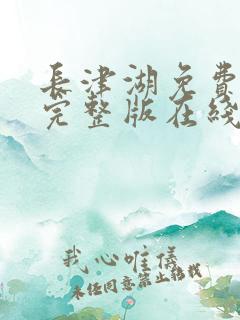 長津湖免費
完整版在綫
我心唯儀
未经同意禁止搬栽